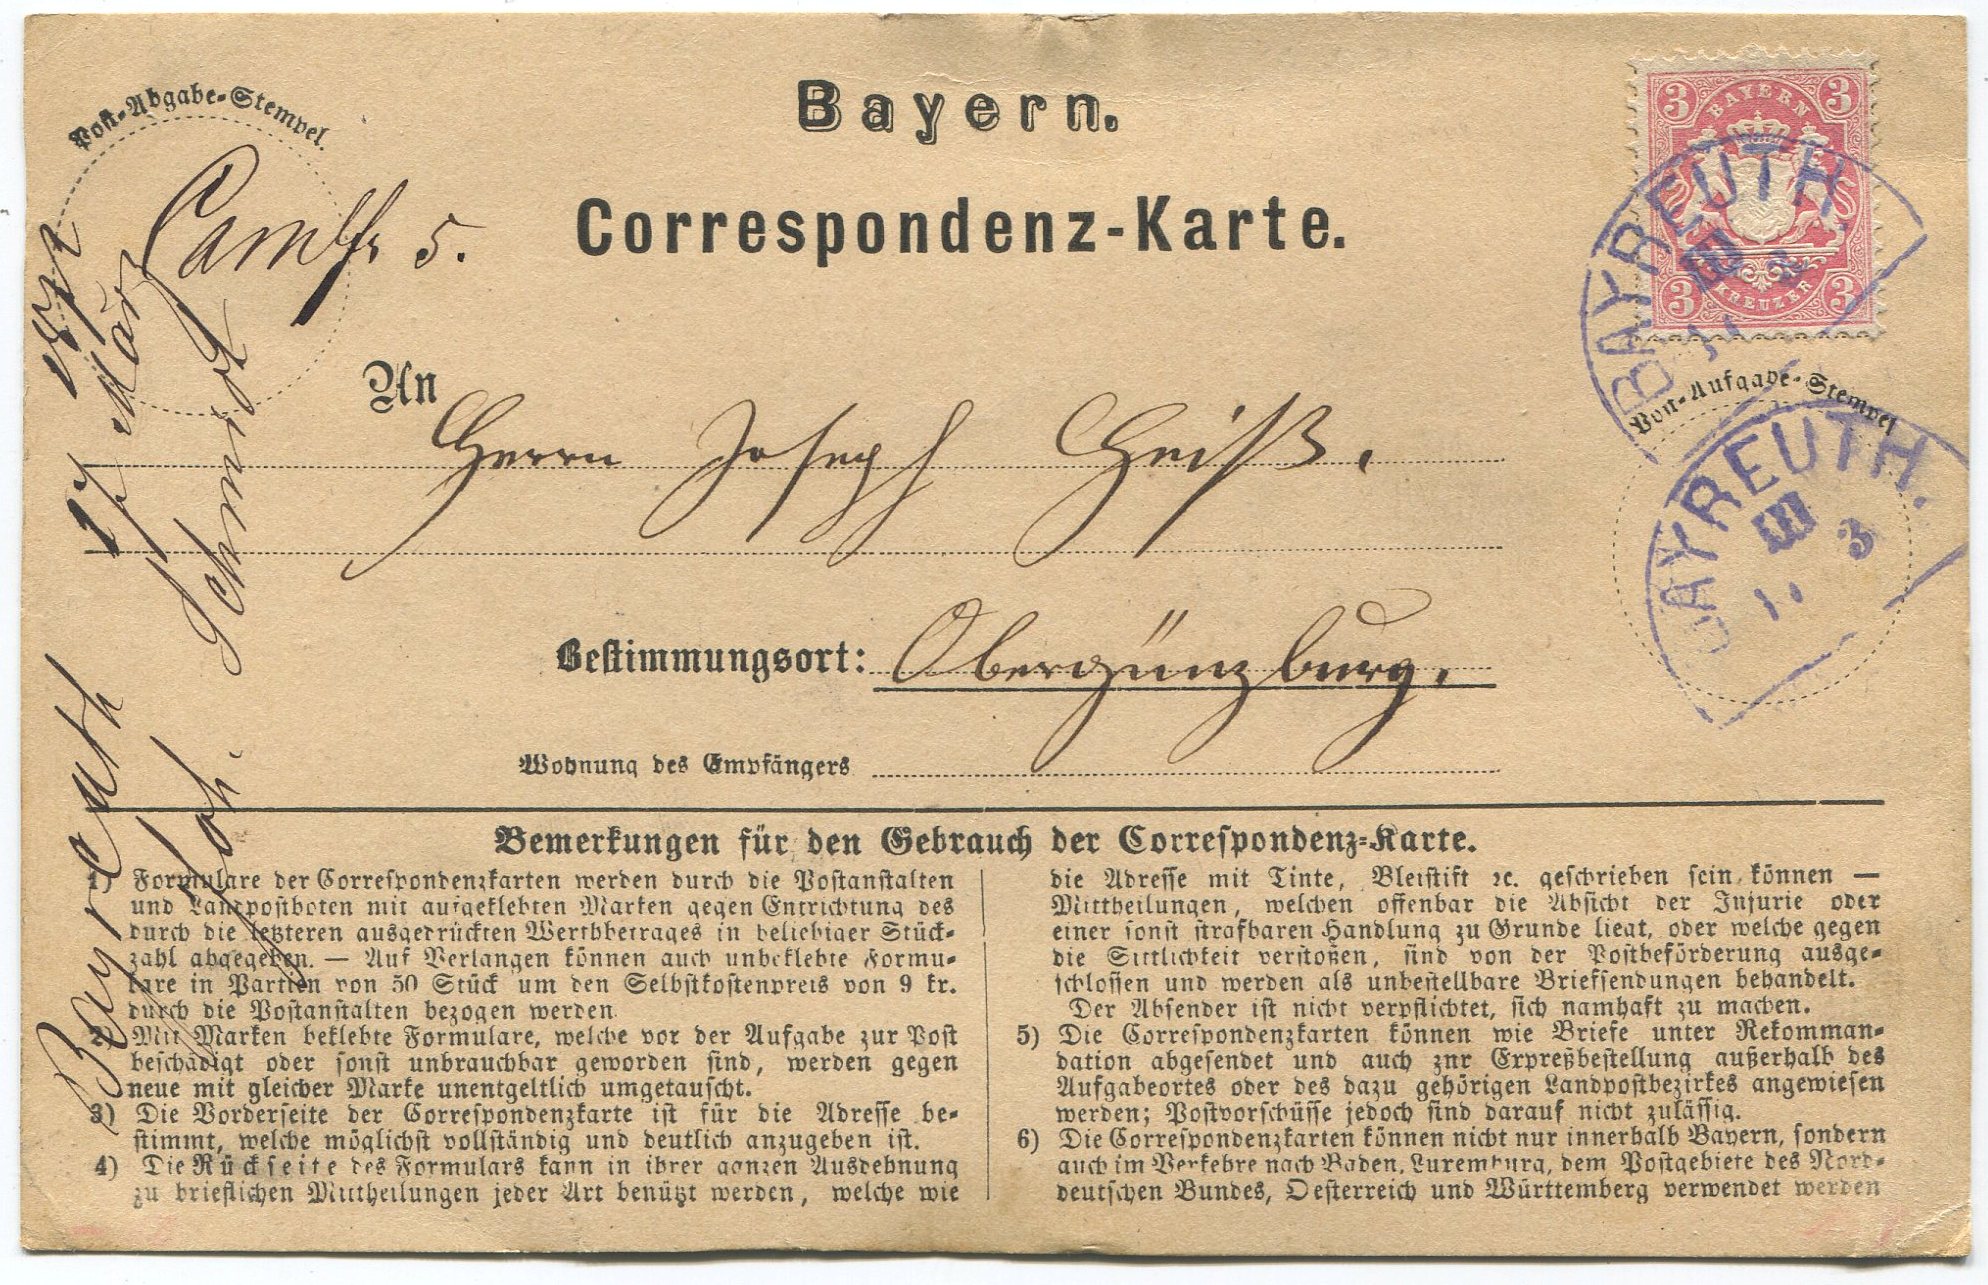 Bayern.
Correspondenz-Karte.
Post-Abgabe-Stempel.
5.
3 BAYERN 3
3 KREUZER 3
BAYREUTH.
III 3
Post-Aufgabe-Stempel
BAYREUTH.
III 3
An
Herrn Joseph Geiß.
Bestimmungsort: Obergünzburg.
Wohnung des Empfängers
Bayreuth 17 März
Schmidt
Bemerkungen für den Gebrauch der Correspondenz-Karte.
1) Formulare der Correspondenzkarten werden durch die Postanstalten
und Landpostboten mit aufgeklebten Marken gegen Entrichtung des
durch die letzteren ausgedrückten Werthbetrages in beliebiger Stück-
zahl abgegeben. — Auf Verlangen können auch unbeklebte Formu-
lare in Partien von 50 Stück um den Selbstkostenpreis von 9 kr.
durch die Postanstalten bezogen werden
2) Mit Marken beklebte Formulare, welche vor der Aufgabe zur Post
beschädigt oder sonst unbrauchbar geworden sind, werden gegen
neue mit gleicher Marke unentgeltlich umgetauscht.
3) Die Vorderseite der Correspondenzkarte ist für die Adresse be-
stimmt, welche möglichst vollständig und deutlich anzugeben ist.
4) Die Rückseite des Formulars kann in ihrer ganzen Ausdehnung
zu brieflichen Mittheilungen jeder Art benützt werden, welche wie
die Adresse mit Tinte, Bleistift ꝛc. geschrieben sein können —
Mittheilungen, welchen offenbar die Absicht der Injurie oder
einer sonst strafbaren Handlung zu Grunde liegt, oder welche gegen
die Sittlichkeit verstoßen, sind von der Postbeförderung ausge-
schlossen und werden als unbestellbare Briefsendungen behandelt.
Der Absender ist nicht verpflichtet, sich namhaft zu machen.
5) Die Correspondenzkarten können wie Briefe unter Rekomman-
dation abgesendet und auch znr Expreßbestellung außerhalb des
Aufgabeortes oder des dazu gehörigen Landpostbezirkes angewiesen
werden; Postvorschüsse jedoch sind darauf nicht zulässig.
6) Die Correspondenzkarten können nicht nur innerhalb Bayern, sondern
auch im Verkehre nach Baden, Luxemburg, dem Postgebiete des Nord-
deutschen Bundes, Oesterreich und Württemberg verwendet werden